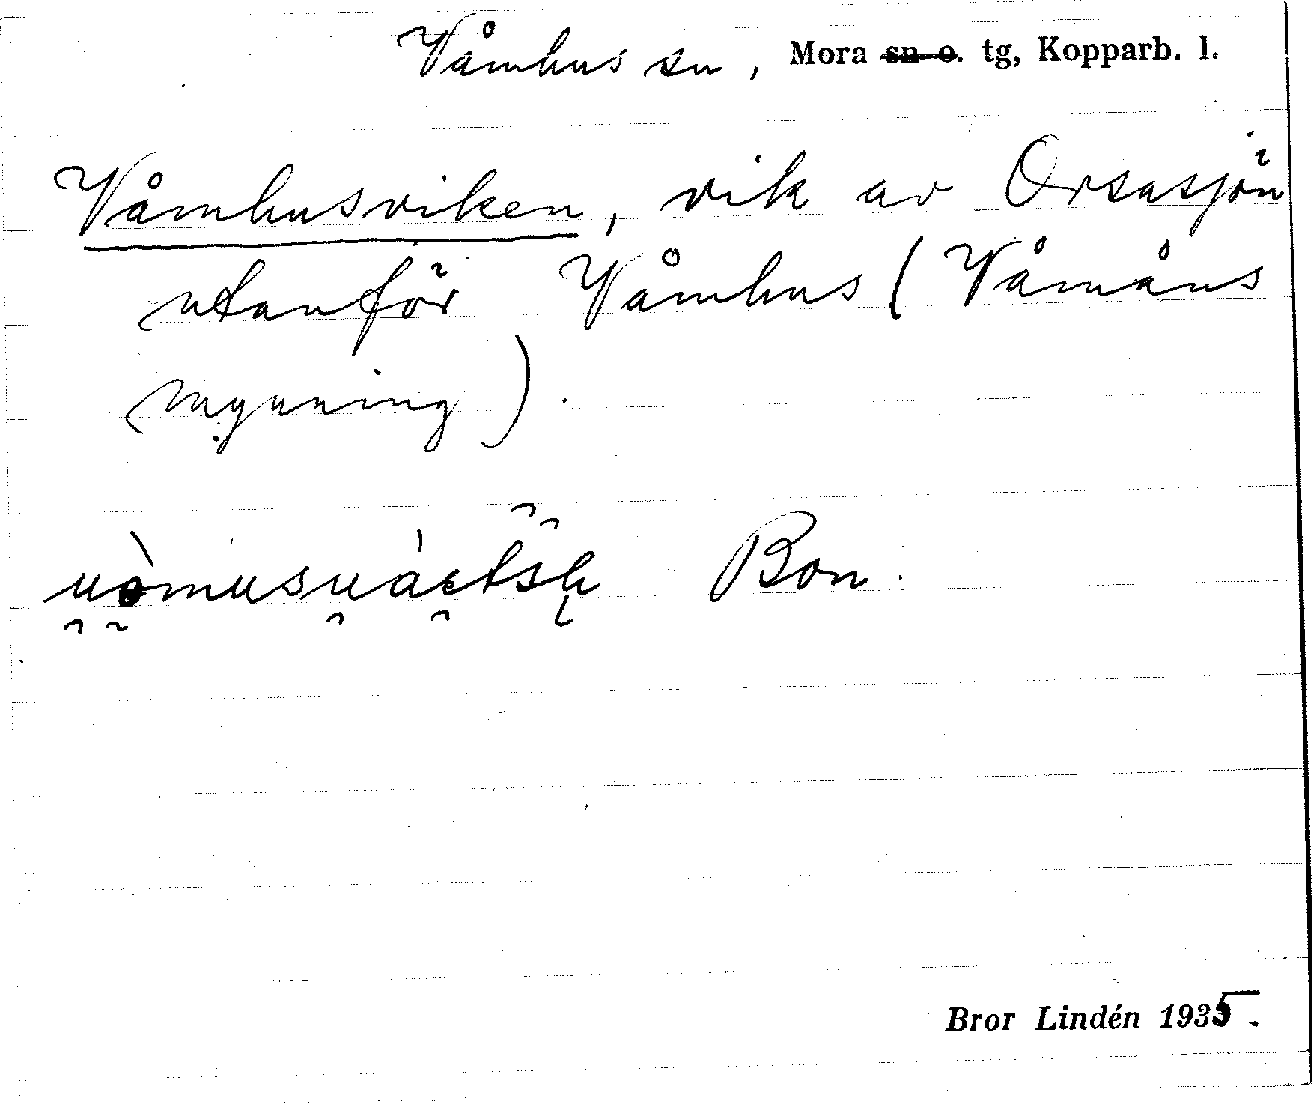 Våmhus sn, Mora sn o. tg, Kopparb. l.
Våmhusviken, vik av Orsasjön
utanför Våmhus (Våmåns
mynning).
Bon.
Bror Lindén 1935.